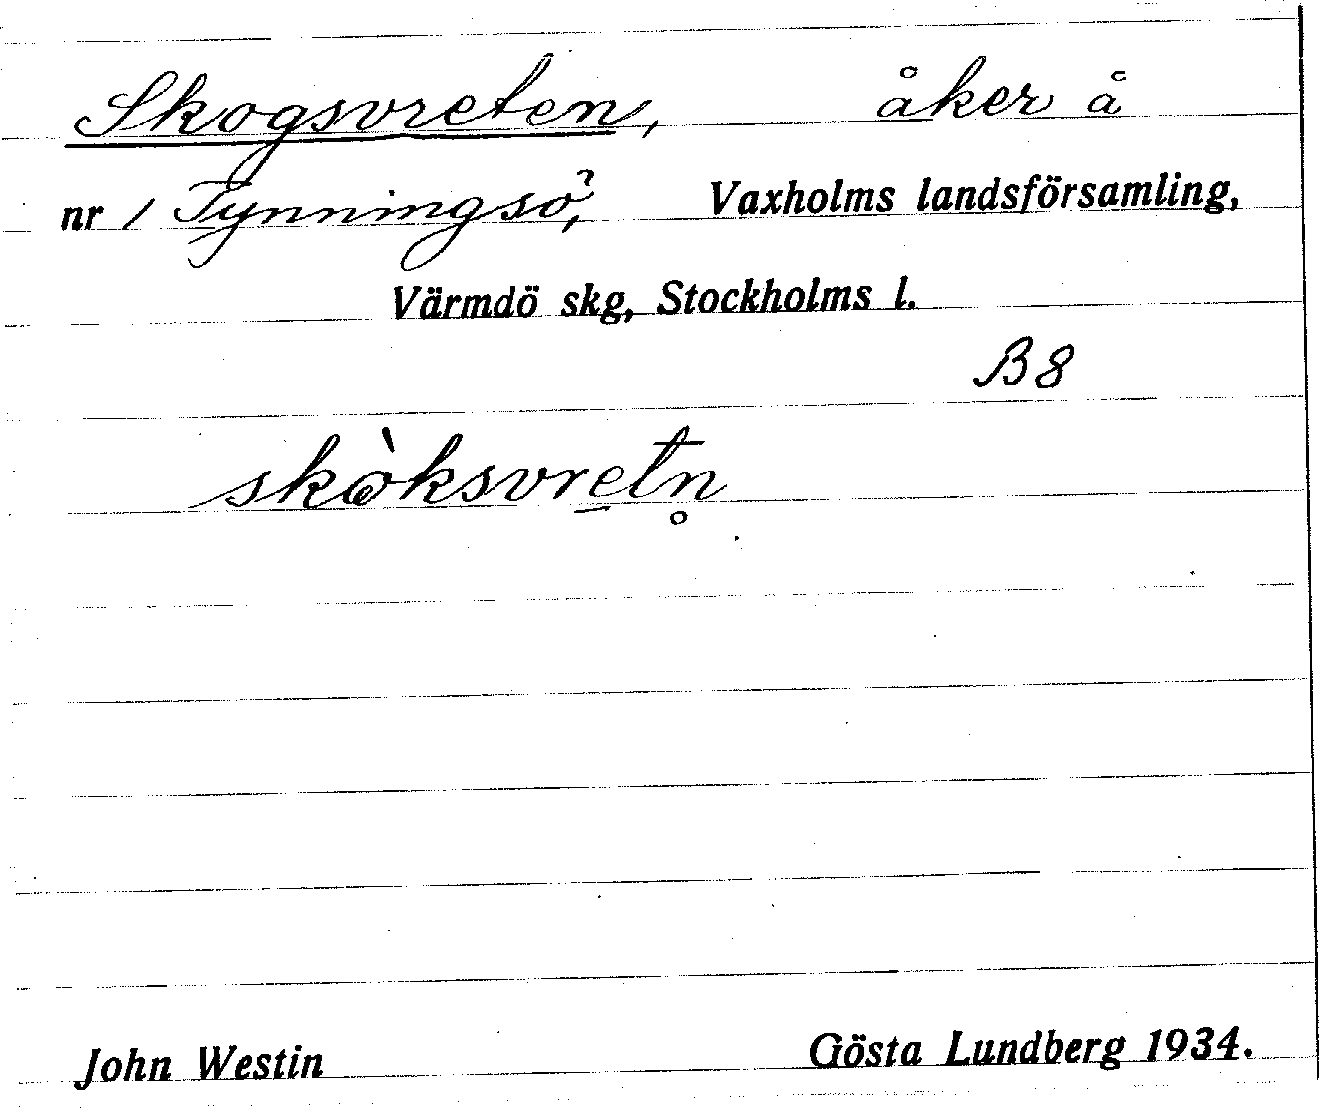 Skogsvreten, åker å
nr 1 Tynningsö, Vaxholms landsförsamling,
Värmdö skg, Stockholms l.
B8
skòksvre̲tn̥
John Westin Gösta Lundberg 1934.